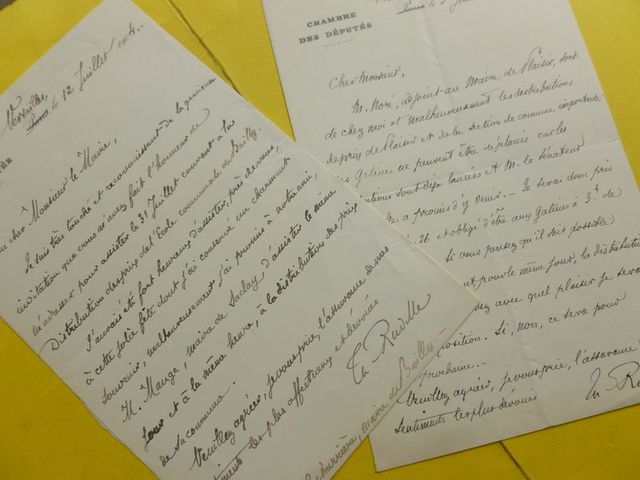 Versailles,
le 12 Juillet 1904.
Mon cher Monsieur le Maire,
Je suis très touché et reconnaissant de la gracieuse
invitation que vous m'avez fait l'honneur de
m'adresser pour assister le 31 Juillet courant à la
Distribution des prix de l'Ecole communale de Bailly.
J'aurais été fort heureux d'assister, près de vous,
à cette jolie fête dont j'ai conservé un charmant
souvenir, malheureusement j'ai promis à notre ami,
M. Mauge, maire de Saclay d'assister le même
jour et à la même heure, à la distribution des prix
de sa commune.
Veuillez agréer, je vous prie, l'assurance de mes
sentiments les plus affectueux et dévoués
maire de Bailly.
CHAMBRE
DES DÉPUTÉS
Cher Monsieur,
M. Noré, adjoint au Maire de Plaisir, sort
de chez moi et malheureusement les distributions
de prix de Plaisir et de la section de commune importante
des Gâtines ne peuvent être déplacés car les
invitations sont déjà lancées et M. le Sénateur
a promis d'y venir. - Je serai donc pris
26 et obligé d'être aux Gâtines à 3h
Si vous pensez qu'il soit possible
pour le même jour, la distribution
avec quel plaisir je serai
position. Si, non, ce sera pour
prochaine. -
Veuillez agréer, je vous prie, l'assurance
sentiments les plus dévoués